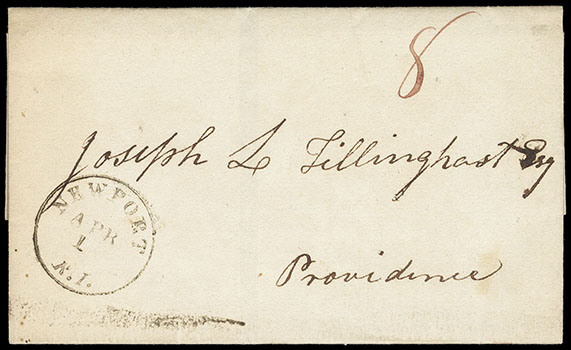 8
Joseph L Tillinghast Esq
NEWPORT
APR
1
R.I.
Providence